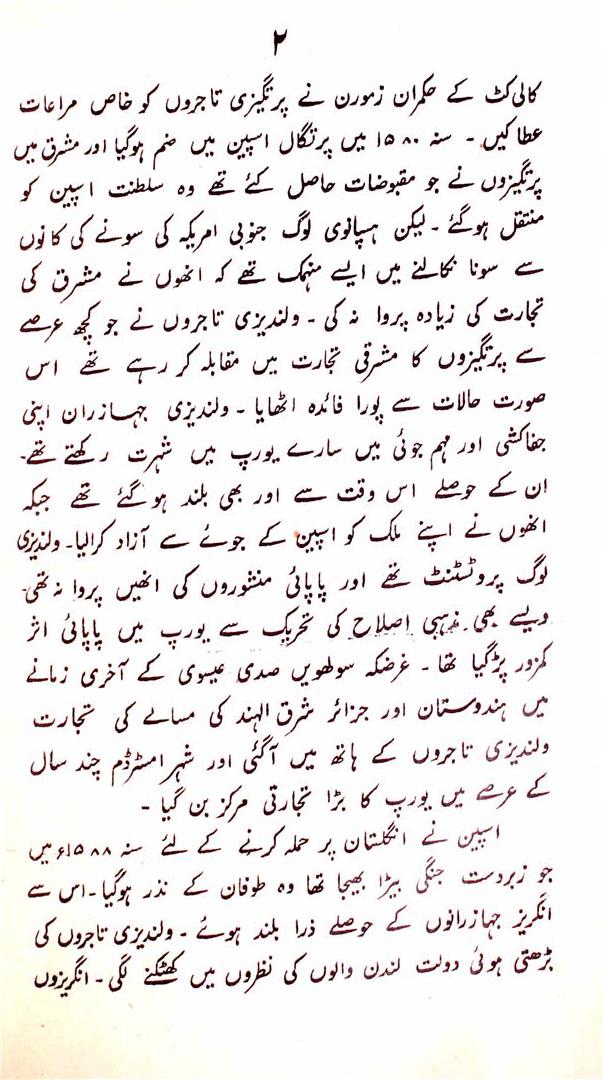 ۲
کالی کٹ کے حکمران زمورن نے پرتگیزی تاجروں کو خاص مراعات
عطا کیں ۔ سنہ ۱۵۸۰ میں پرتگال اسپین میں ضم ہوگیا اور مشرق میں
پرتگیزوں نے جو مقبوضات حاصل کئے تھے وہ سلطنت اسپین کو
منتقل ہوگئے ۔ لیکن ہسپانوی لوگ جنوبی امریکہ کی سونے کی کانوں
سے سونا نکالنے میں ایسے منہمک تھے کہ انھوں نے مشرق کی
تجارت کی زیادہ پروا نہ کی ۔ ولندیزی تاجروں نے جو کچھ عرصے
سے پرتگیزوں کا مشرقی تجارت میں مقابلہ کر رہے تھے اس
صورت حالات سے پورا فائدہ اٹھایا ۔ ولندیزی جہازران اپنی
جفاکشی اور مہم جوئی میں سارے یورپ میں شہرت رکھتے تھے۔
ان کے حوصلے اس وقت سے اور بھی بلند ہو گئے تھے جبکہ
انھوں نے اپنے ملک کو اسپین کے جوئے سے آزاد کرالیا۔ ولندیزی
لوگ پروٹسٹنٹ تھے اور پاپائی منشوروں کی انھیں پروا نہ تھی۔
ویسے بھی مذہبی اصلاح کی تحریک سے یورپ میں پاپائی اثر
کمزور پڑگیا تھا ۔ غرضکہ سولھویں صدی عیسوی کے آخری زمانے
میں ہندوستان اور جزائر شرق الہند کی مسالے کی تجارت
ولندیزی تاجروں کے ہاتھ میں آگئی اور شہر امسٹرڈم چند سال
کے عرصے میں یورپ کا بڑا تجارتی مرکز بن گیا ۔
اسپین نے انگلستان پر حملہ کرنے کے لئے سنہ ۱۵۸۸ء میں
جو زبردست جنگی بیڑا بھیجا تھا وہ طوفان کے نذر ہوگیا۔ اس سے
انگریز جہازرانوں کے حوصلے ذرا بلند ہوئے ۔ ولندیزی تاجروں کی
بڑھتی ہوئی دولت لندن والوں کی نظروں میں کھٹکنے لگی ۔ انگریزوں